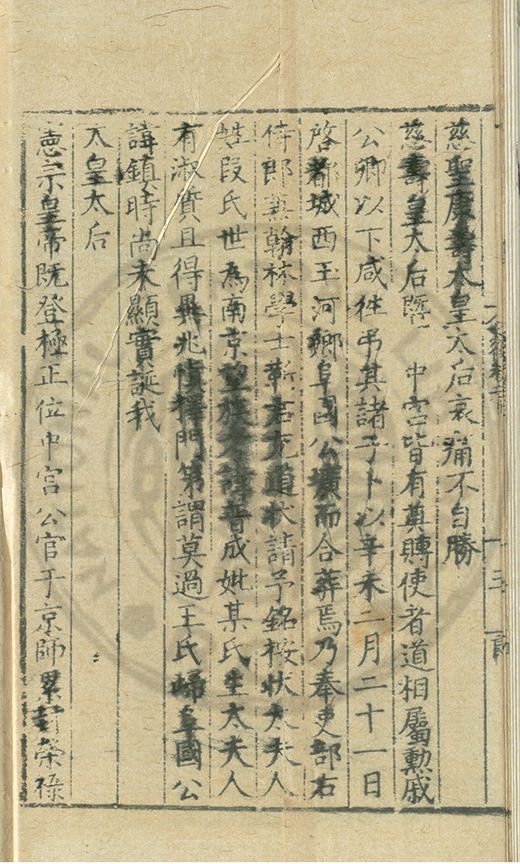 慈聖康壽太皇太后哀痛不自勝
慈壽皇太后曁 中宮皆有奠賻使者道相屬勳戚
公卿以下咸徃弔其諸子卜以辛未二月二十一日
啓都城西玉河鄉阜國公壙而合葬焉乃奉吏部右
侍郎兼翰林學士靳君充道狀請予銘桉狀太夫人
姓段氏世爲南京望族考諱普成妣某氏生太夫人
有淑質且得異兆愼擇門第謂莫過王氏歸阜國公
諱鎮時尚未顯實誕我
太皇太后
憲宗皇帝既登極正位中宮公官于京師累封榮祿